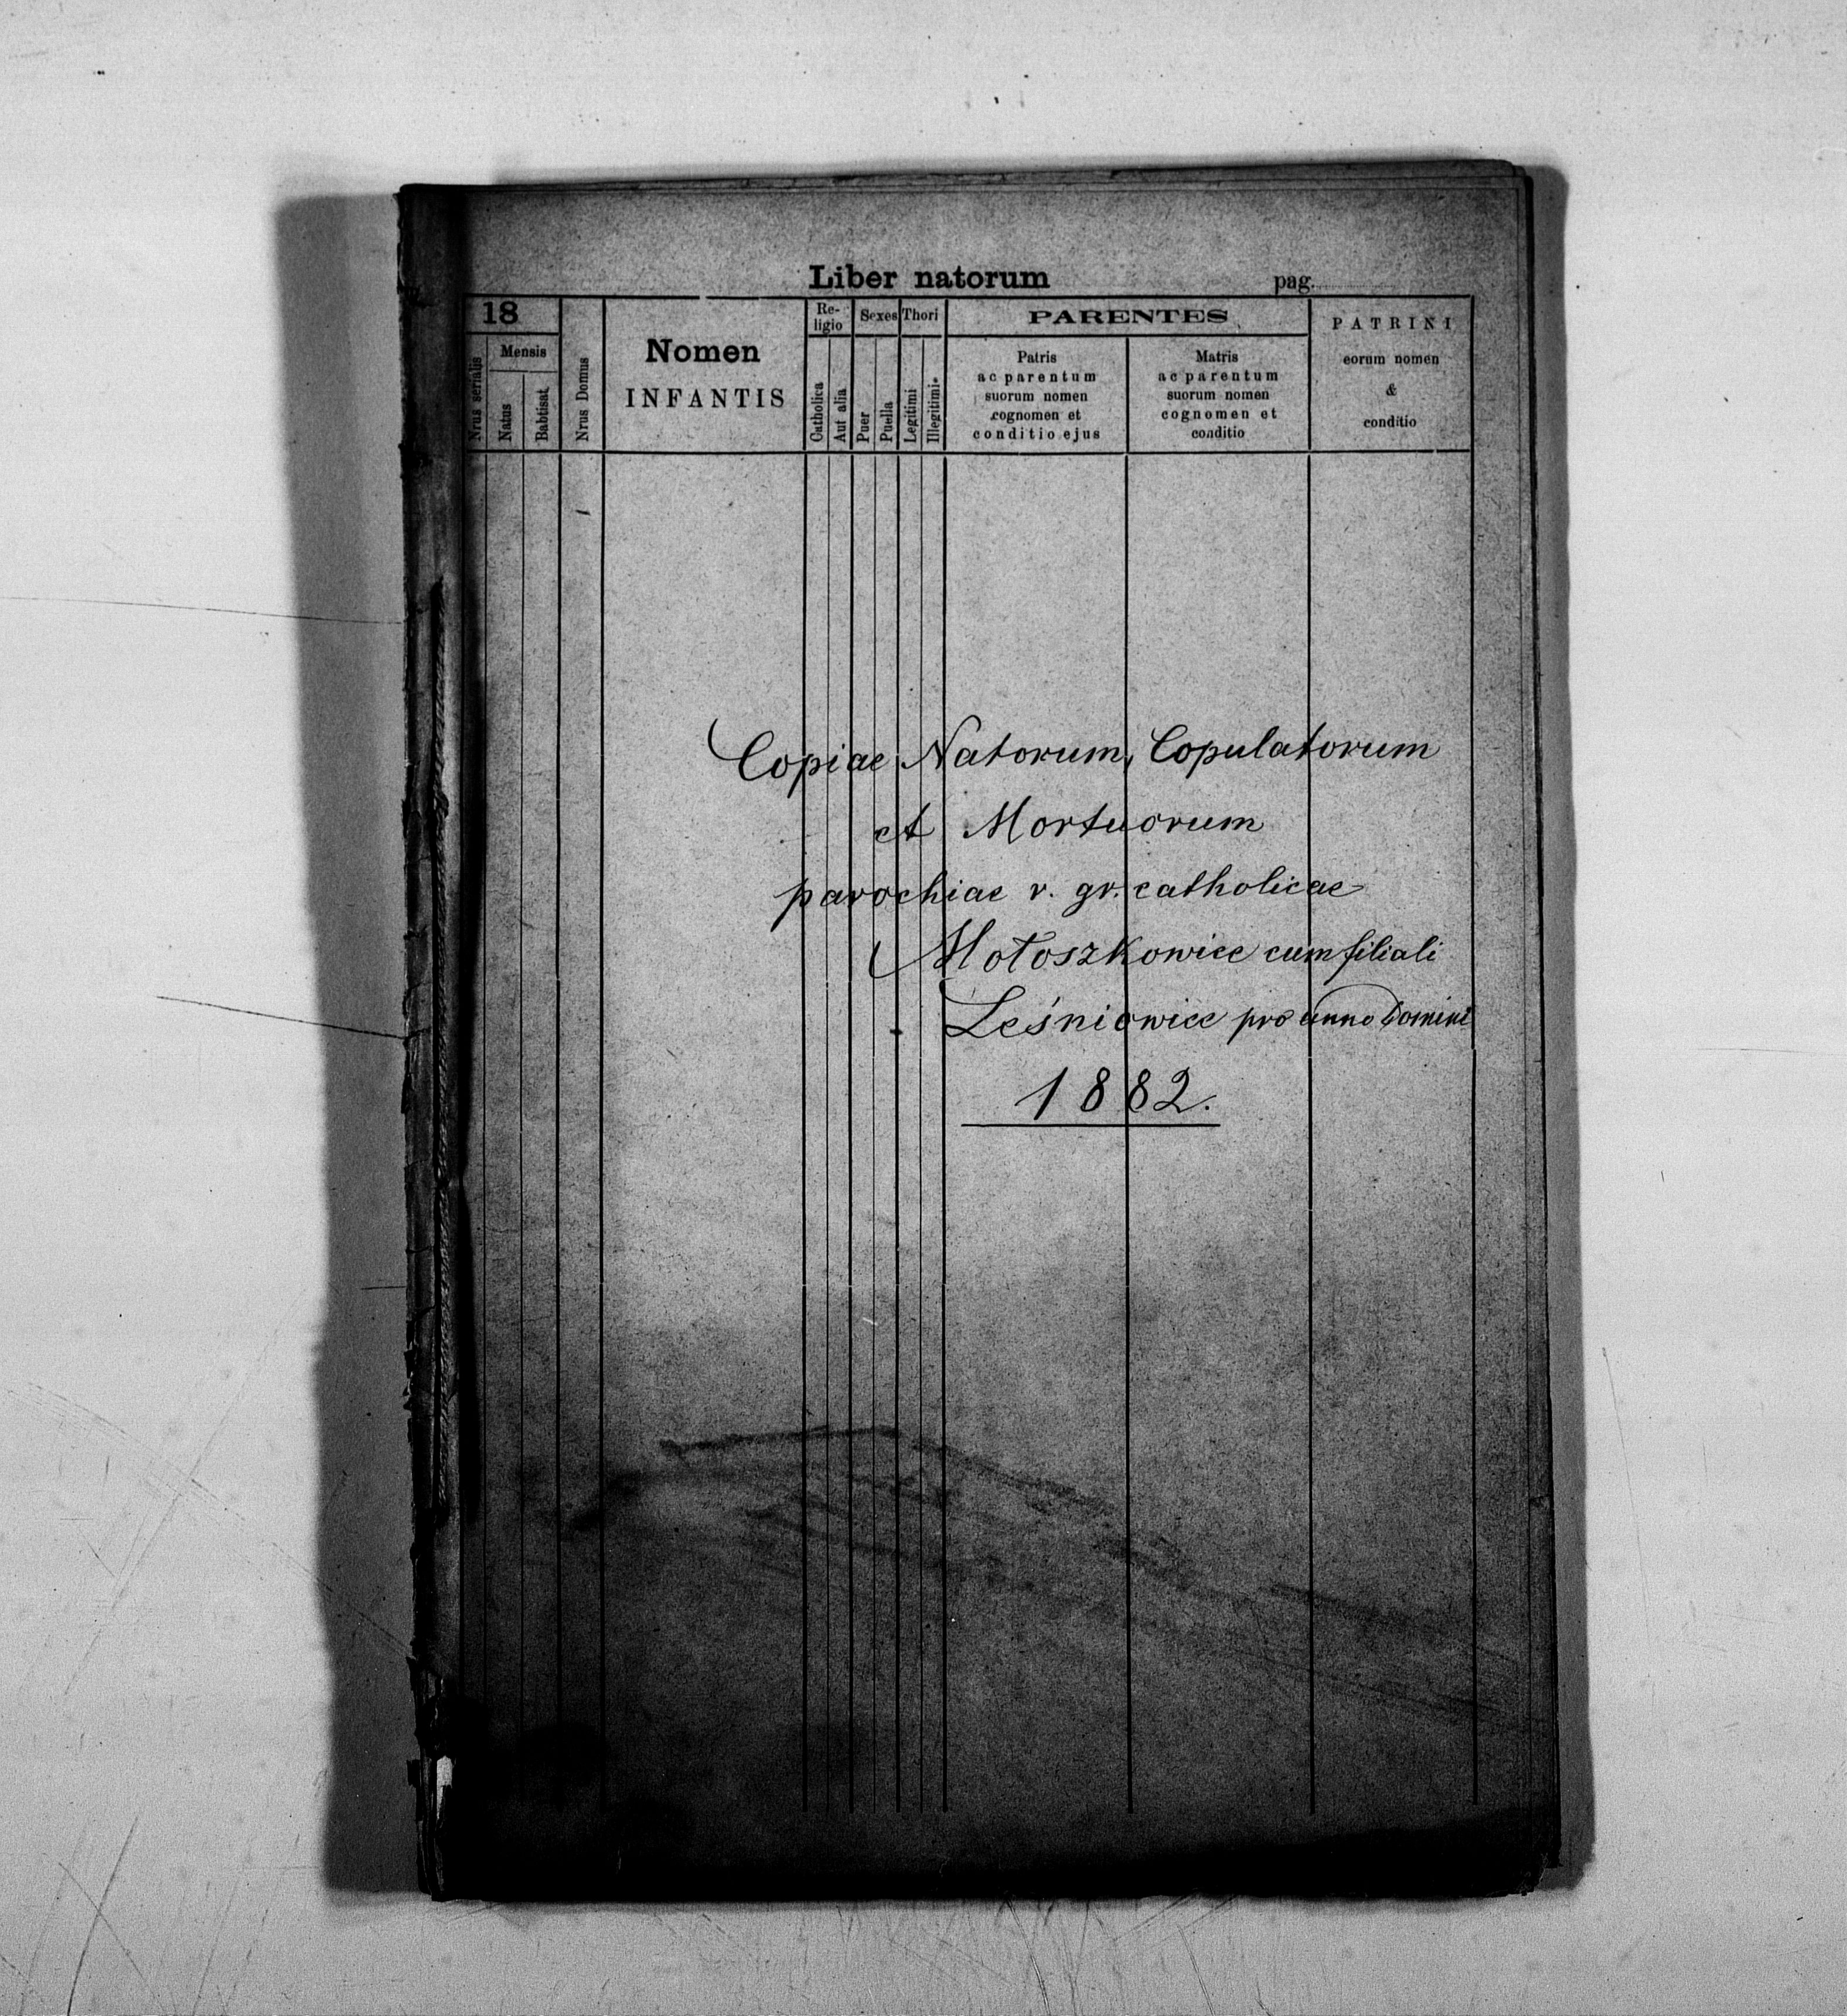 Liber natorum
pag.
18
Nrus serialis
Mensis
Natus
Babtisat.
Nrus Domus
Nomen
INFANTIS
Re-
ligio
Catholica
Aut alia
Sexes
Puer
Puella
Thori
Legitimi
Illegitimi
PARENTES
Patris
ac parentum
suorum nomen
cognomen et
conditio ejus
Matris
ac parentum
suorum nomen
cognomen et
conditio
PATRINI
eorum nomen
&
conditio
Copiae Natorum, Copulatorum
et Mortuorum
parochiae r. gr. catholicae
Mołoszkowice cum filiali
Leśniowice pro anno Domini
1882.